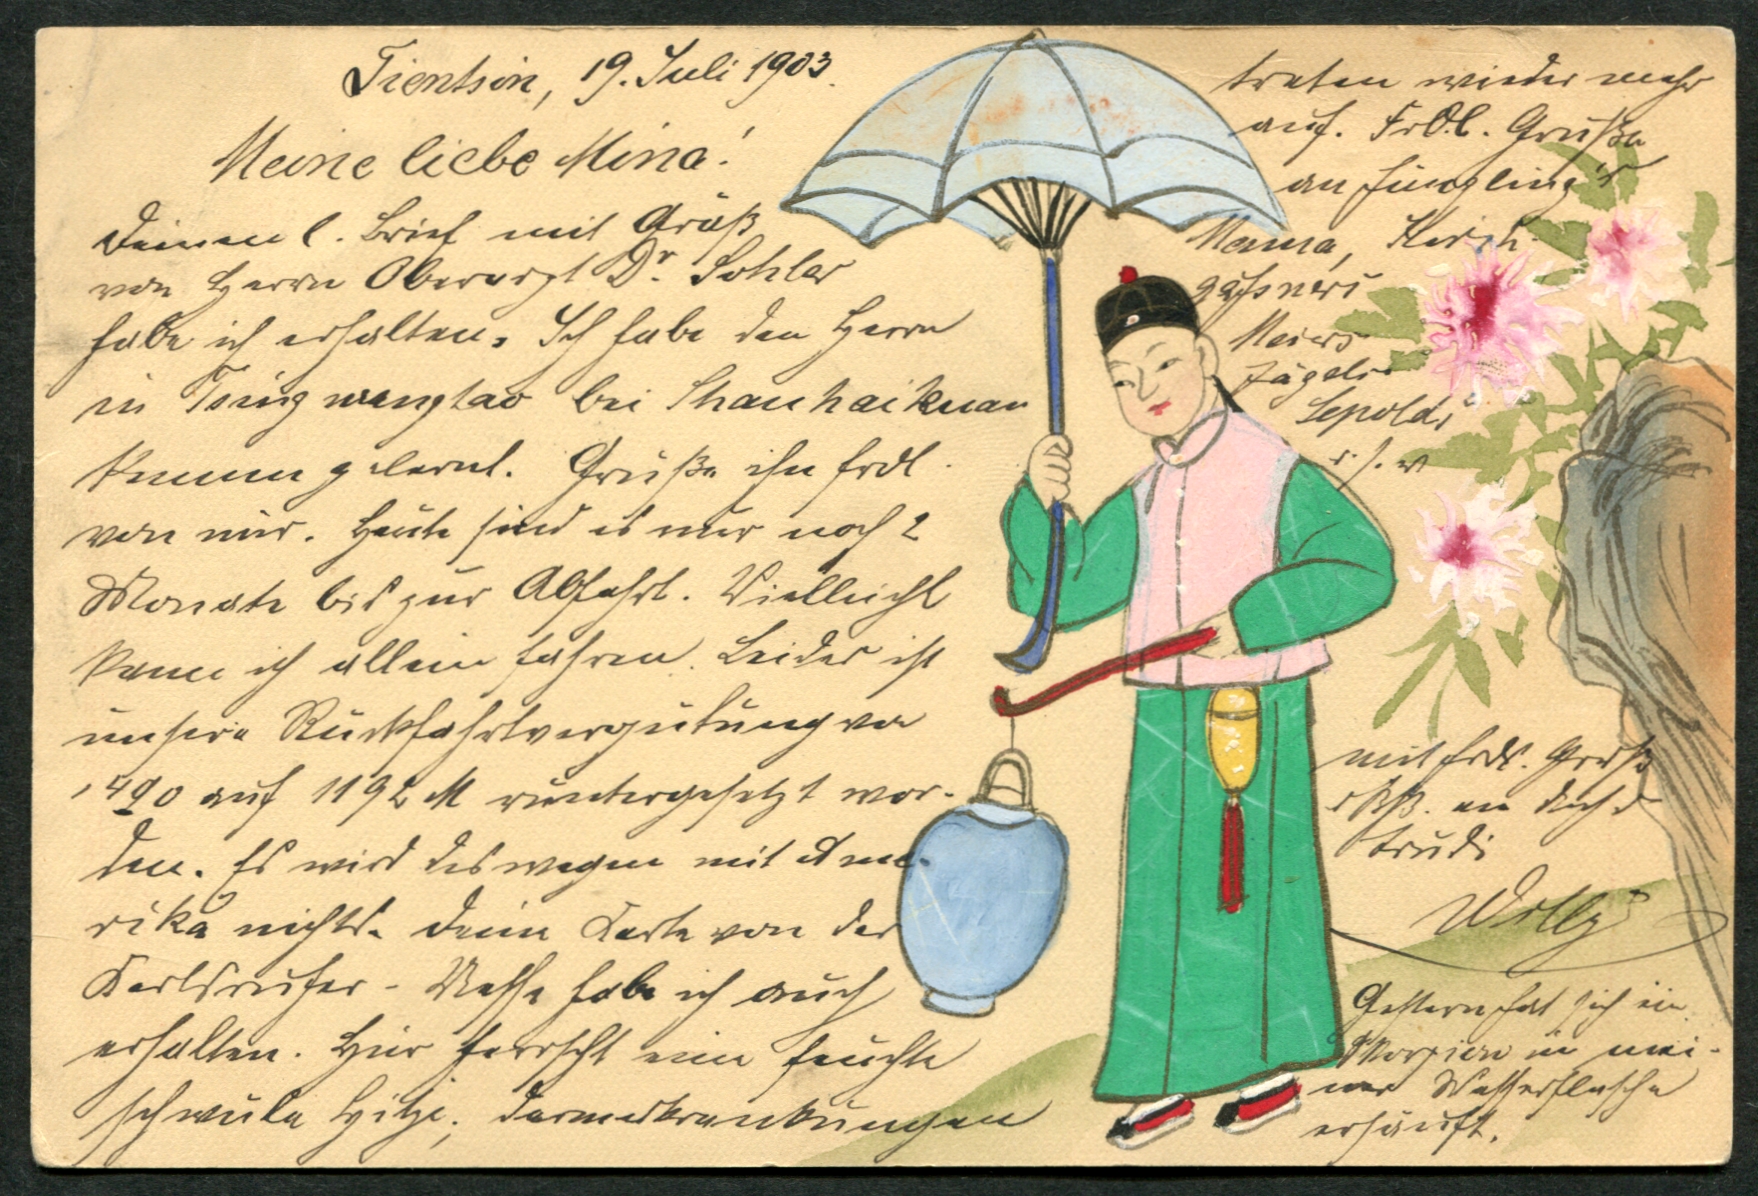 Tientsin, 19. Juli 1903.
Meine liebe Mina!
Deinen l. Brief mit Grüß
von Herrn Oberarzt Dr.
habe ich erhalten. Ich habe den Herrn
in Tsingwangtao bei Shanhaikuan
kennen gelernt. Grüße ihn frdl.
von mir. Heute sind es nur noch 2
Monate bis zur Abfahrt. Vielleicht
kann ich allein fahren. Leider ist
unsere Rückfahrtvergütung von
1490 auf 1192 M runtergesetzt wor-
den. Es wird deswegen mit Ame-
rika nichts. Deine Karte von der
Karlsruher-Messe habe ich auch
erhalten. Hier herrscht eine feuchte
schwüle Hitze; Darmerkrankungen
treten wieder mehr
auf. Frdl. Grüße
an Jüngling's
Mama, Kirch-
gäßner's
Meiers
Jägels
Lepold's
u. s. w
mit frdl. Gruß
u. Kß. an Dich u
Trudi
Willy
Gestern hat sich ein
Skorpion in mei-
ner Wasserflasche
ersäuft.